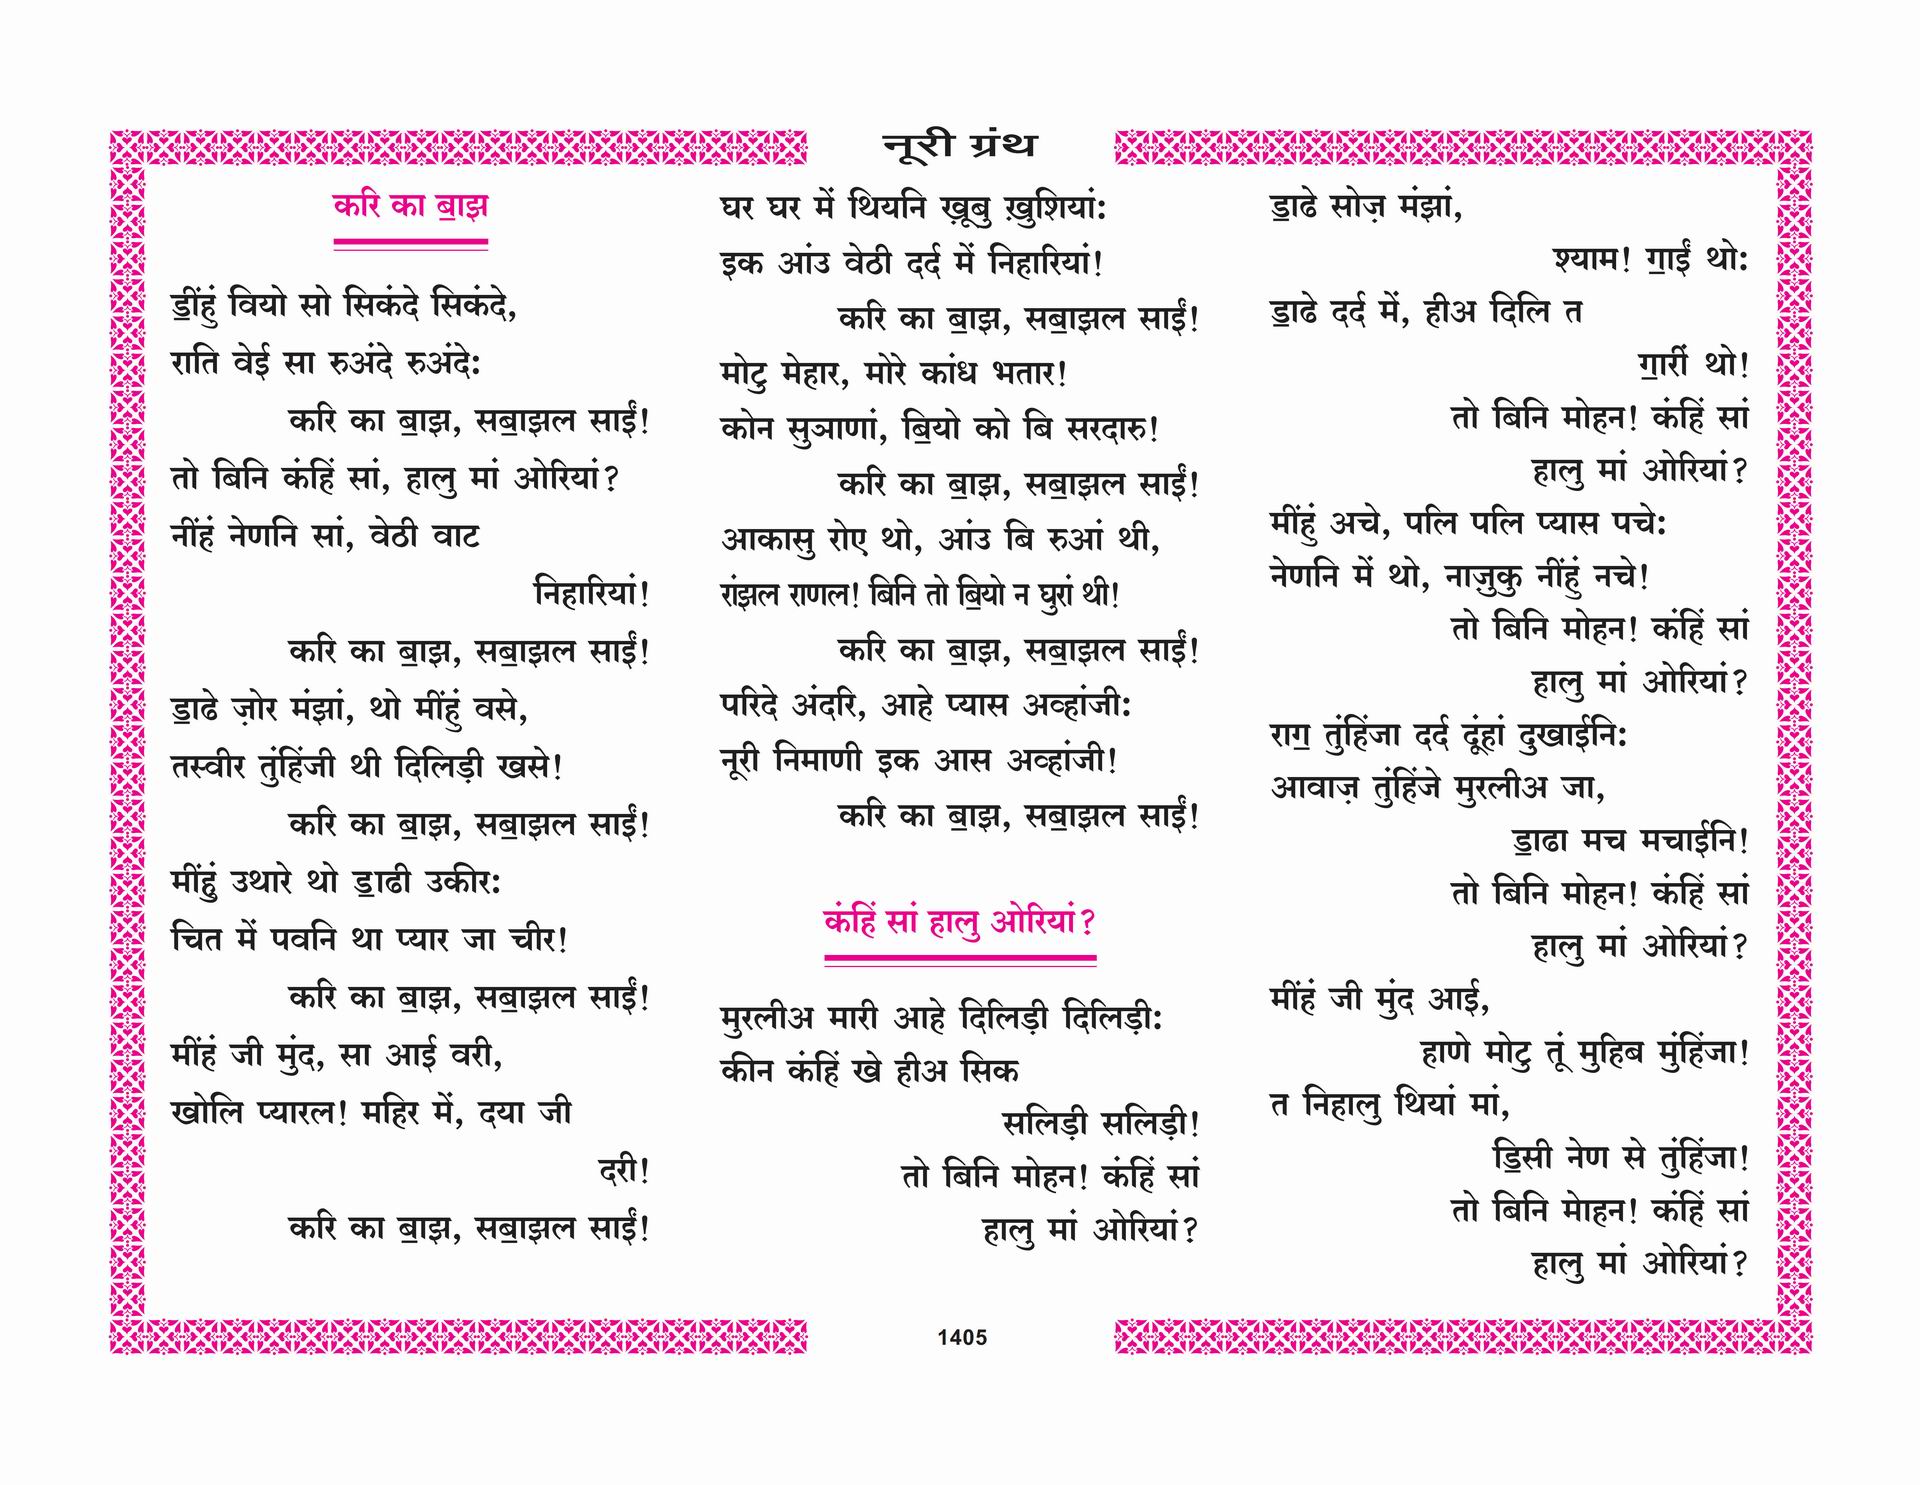 नूरी ग्रंथ
करि का ॿाझ
ॾींहुं वियो सो सिकंदे सिकंदे,
राति वेई सा रुअंदे रुअंदे:
करि का ॿाझ, सॿाझल साईं!
तो बिनि कंहिं सां, हालु मां ओरियां?
नींहं नेणनि सां, वेठी वाट
निहारियां!
करि का ॿाझ, सॿाझल साईं!
ॾाढे ज़ोर मंझां, थो मींहुं वसे,
तस्वीर तुंहिंजी थी दिलिड़ी खसे!
करि का ॿाझ, सॿाझल साईं!
मींहुं उथारे थो ॾाढी उकीर:
चित में पवनि था प्यार जा चीर!
करि का ॿाझ, सॿाझल साईं!
मींहं जी मुंद, सा आई वरी,
खोलि प्यारल! महिर में, दया जी
दरी!
करि का ॿाझ, सॿाझल साईं!
घर घर में थियनि ख़ूबु ख़ुशियां:
इक आंउ वेठी दर्द में निहारियां!
करि का ॿाझ, सॿाझल साईं!
मोटु मेहार, मोरे कांध भतार!
कोन सुञाणां, ॿियो को बि सरदारु!
करि का ॿाझ, सॿाझल साईं!
आकासु रोए थो, आंउ बि रुआं थी,
रांझल राणल! बिनि तो ॿियो न घुरां थी!
करि का ॿाझ, सॿाझल साईं!
परिदे अंदरि, आहे प्यास अव्हांजी:
नूरी निमाणी इक आस अव्हांजी!
करि का ॿाझ, सॿाझल साईं!
कंहिं सां हालु ओरियां?
मुरलीअ मारी आहे दिलिड़ी दिलिड़ी:
कीन कंहिं खे हीअ सिक
सलिड़ी सलिड़ी!
तो बिनि मोहन! कंहिं सां
हालु मां ओरियां?
ॾाढे सोज़ मंझां,
श्याम! ॻाईं थो:
ॾाढे दर्द में, हीअ दिलि त
ॻारीं थो!
तो बिनि मोहन! कंहिं सां
हालु मां ओरियां?
मींहुं अचे, पलि पलि प्यास पचे:
नेणनि में थो, नाज़ुकु नींहुं नचे!
तो बिनि मोहन! कंहिं सां
हालु मां ओरियां?
राॻ तुंहिंजा दर्द दूंहां दुखाईनि:
आवाज़ तुंहिंजे मुरलीअ जा,
ॾाढा मच मचाईनि!
तो बिनि मोहन! कंहिं सां
हालु मां ओरियां?
मींहं जी मुंद आई,
हाणे मोटु तूं मुहिब मुंहिंजा!
त निहालु थियां मां,
ॾिसी नेण से तुंहिंजा!
तो बिनि मोहन! कंहिं सां
हालु मां ओरियां?
1405